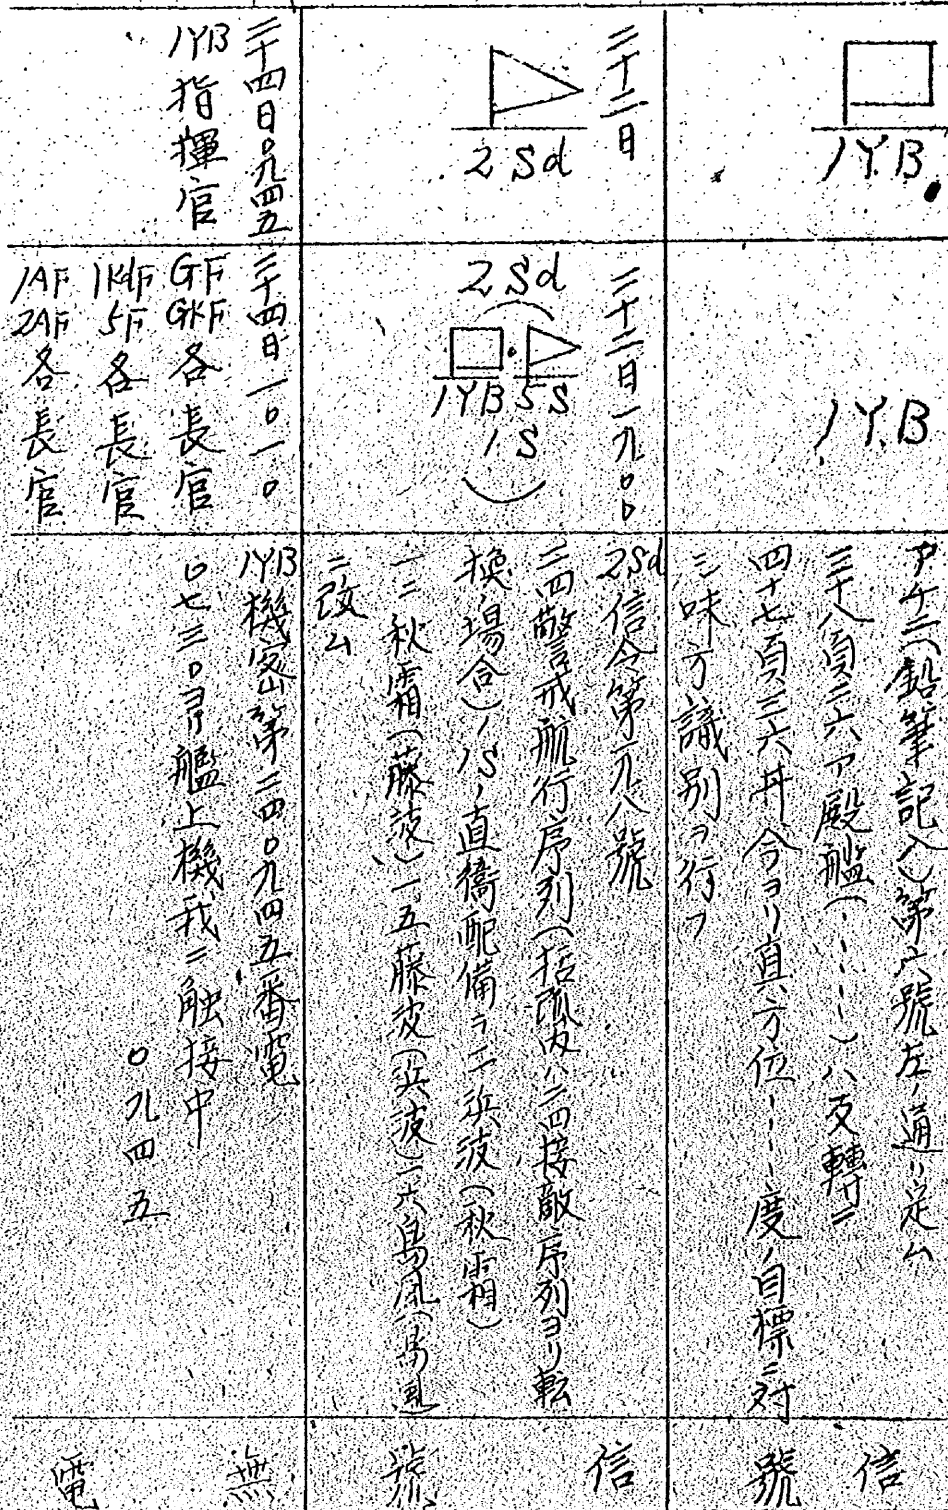 1Y.B.
1Y.B
(鉛筆記入)第六號左ノ通リ定ム
三十八頁三六ア殿艦(……)ハ反轉セヨ
四十七頁三六丼今ヨリ真方位……度ノ目標ニ対
シ味方識別ヲ行フ
信號
二十二日
2Sd
二十二日一九〇〇
2Sd
1YB 5S
1S
2Sd信令第一九八號
二四警戒航行序列(括弧内ハ二四接敵序列ヨリ転
換ノ場合)ノ1S直衛配備ヲ二浜波(秋霜)
一二秋霜(藤波)一五藤波(浜波)一六島風(島風)
ニ改ム
信號
二十四日〇九四五
1YB指揮官
二十四日一〇一〇
GF GKF各長官
1KdF 5F各長官
1AF 2AF各長官
1YB機密第二四〇九四五番電
〇七三〇ヨリ艦上機我ニ触接中
〇九四五
無電